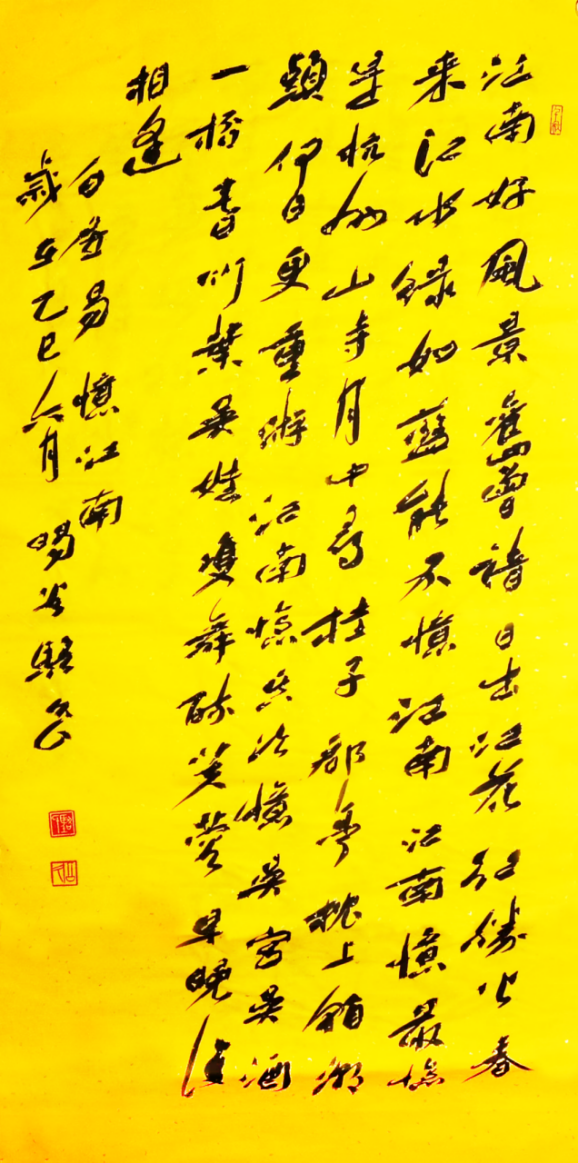 江南好風景舊曾諳日出江花紅勝火春
來江水綠如藍能不憶江南江南憶最憶
是杭州山寺月中尋桂子郡亭枕上看潮
頭何日更重游江南憶其次憶吳宮吳酒
一杯春竹葉吳娃雙舞醉芙蓉早晚復
相逢
白居易憶江南
歲在乙巳六月